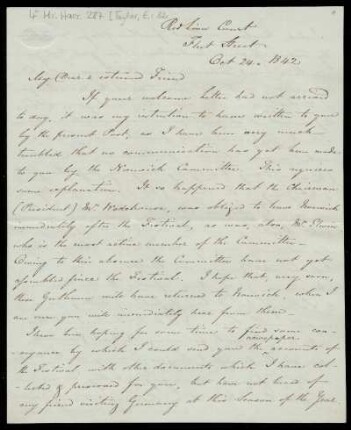 4° Ms. Hass. 287 [Taylor, E.: 12
Red Lion Court
Fleet Street
Oct 24. 1842
My Dear & esteemed Friend
If your welcome letter had not arrived
to day, it was my intention to have written to you
by the present Post, as I have been very much
troubled that no communication has yet been made
to you by the Norwich Committee. This requires
some explanation. It so happened that the Chairman
(President) Mr Wodehouse, was obliged to leave Norwich
immediately after the Festival, as was, also, Mr
who is the most active member of the Committee.
Owing to this absence the Committee have not yet
assembled since the Festival. I hope that very soon,
these Gentlemen will have returned to Norwich, when I
am sure you will immediately hear from them.
I have been hoping for some time to find some con-
newspaper
veyance by which I could send you the accounts of
the Festival, with other documents which I have col-
lected & preserved for you, but have not heard of
any friend visiting Germany at this Season of the Year.